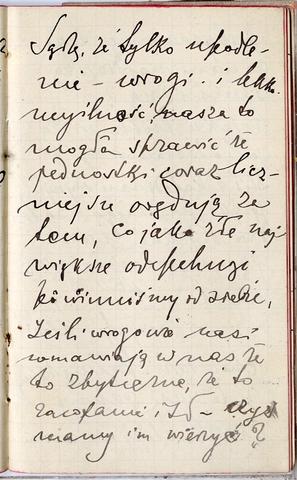 Sądzę, że tylko upodle-
nie - wrogi i lekko-
myślność nasza to
mogła sprawić że
jednostki coraz licz-
niejsze orędują za
tem, co jako złe naj-
większe odepchnąć
powinniśmy od siebie,
Jeśli wrogowie nasi
wmawiają w nas że
to zbyteczne, że to
zacofanie i t d - czyż
mamy im wierzyć?